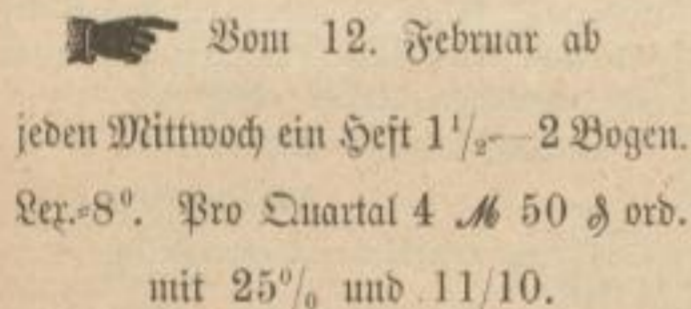 ☛ Vom 12. Februar ab
jeden Mittwoch ein Heft 1 1/2—2 Bogen.
Lex.=8°. Pro Quartal 4 ℳ 50 ₰ ord.
mit 25% und 11/10.